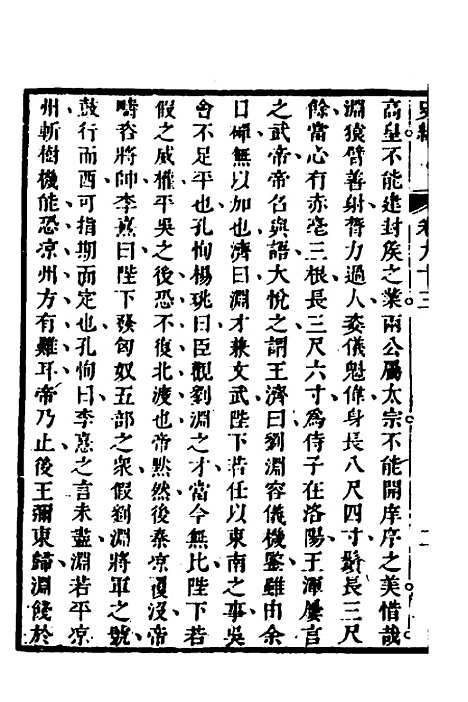 史緯　卷九十三　二
高皇不能建封侯之業兩公屬太宗不能開庠序之美惜哉
淵猿臂善射膂力過人姿儀魁偉身長八尺四寸鬚長三尺
餘當心有赤毫三根長三尺六寸爲侍子在洛陽王渾屢言
之武帝帝召與語大悅之謂王濟曰劉淵容儀機鑒雖由余
日磾無以加也濟曰淵才兼文武陛下若任以東南之事吳
會不足平也孔恂楊珧曰臣觀劉淵之才當今無比陛下若
假之威權平吳之後恐不復北渡也帝黙然後秦凉覆沒帝
疇咨將帥李憙曰陛下發匈奴五部之衆假劉淵將軍之號
鼓行而西可指期而定也孔恂曰李憙之言未盡淵若平凉
州斬樹機能恐凉州方有難耳帝乃止後王彌東歸淵餞於